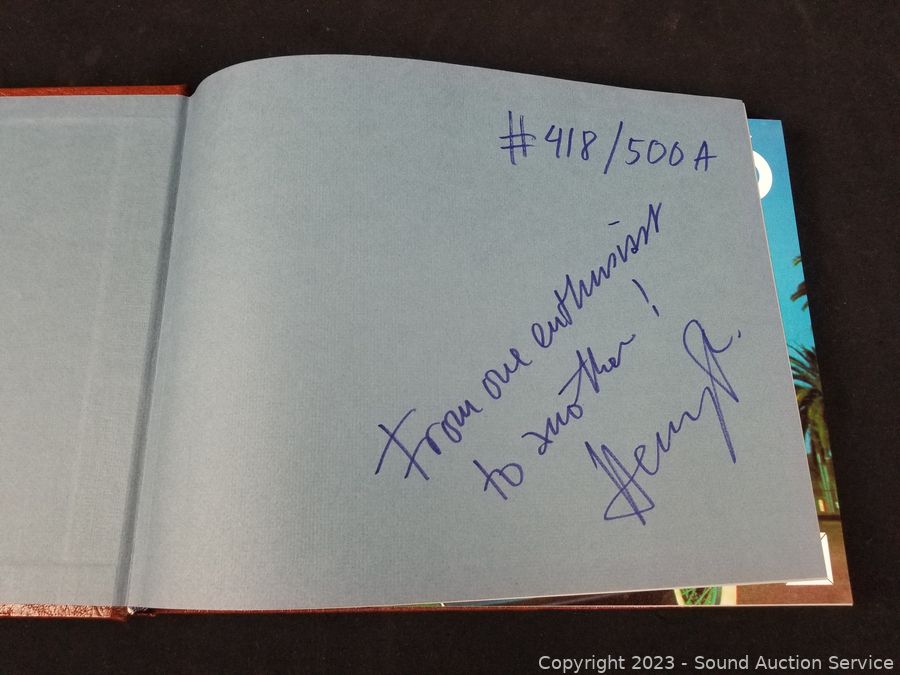 #418/500A
From one enthusiast
to another!
Henry R.
Copyright 2023 - Sound Auction Service